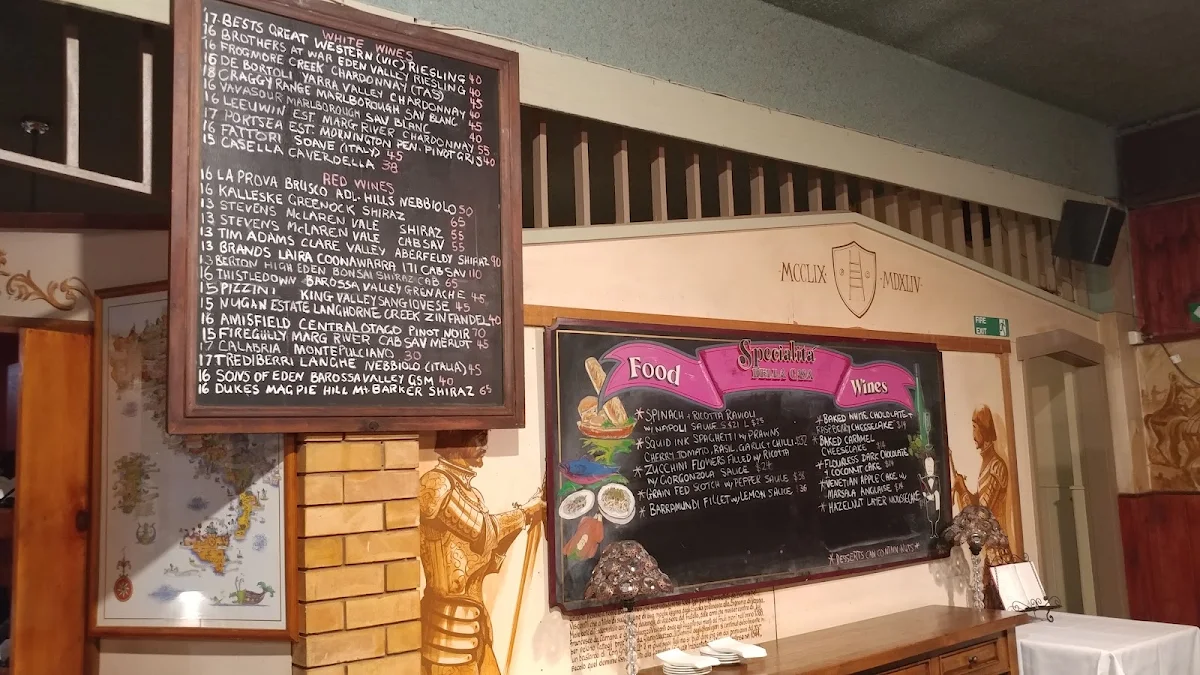 WHITE WINES
'17 BESTS GREAT WESTERN (VIC) RIESLING 40
'16 BROTHERS AT WAR EDEN VALLEY RIESLING 40
'16 FROGMORE CREEK CHARDONNAY (TAS) 45
'16 DE BORTOLI YARRA VALLEY CHARDONNAY 40
'18 CRAGGY RANGE MARLBOROUGH SAV BLANC 45
'16 VAVASOUR MARLBOROUGH SAV BLANC 40
16 LEEUWIN EST MARG RIVER CHARDONNAY 55
17 PORTSEA EST. MORNINGTON PEN. PINOT GRIS 40
16 FATTORI SOAVE (ITALY) 45
15 CASELLA CAVERDELLA 38
RED WINES
16 LA PROVA BRUSCO ADL. HILLS NEBBIOLO 50
16 KALLESKE GREENOCK SHIRAZ 65
13 STEVENS McLAREN VALE SHIRAZ 55
13 STEVENS McLAREN VALE CAB SAV 55
13 TIM ADAMS CLARE VALLEY ABERFELDY SHIRAZ 90
13 BRANDS LAIRA COONAWARRA 171 CAB SAV 110
13 BERTON HIGH EDEN BONSAI SHIRAZ CAB 65
16 THISTLEDOWN BAROSSA VALLEY GRENACHE 45
15 PIZZINI KING VALLEY SANGIOVESE 45
15 NUGAN ESTATE LANGHORNE CREEK ZINFANDEL 40
16 AMISFIELD CENTRAL OTAGO PINOT NOIR 70
15 FIREGULLY MARG RIVER CAB SAV MERLOT 45
17 CALABRIA MONTEPULCIANO 30
17 TREDIBERRI LANGHE NEBBIOLO (ITALIA) 45
16 SONS OF EDEN BAROSSA VALLEY GSM 40
16 DUKES MAGPIE HILL Mt BARKER SHIRAZ 65
·MCCLIX· ·MDXLIV·
FIRE EXIT
Specialitá
DELLA CASA
Food
Wines
* SPINACH + RICOTTA RAVIOLI
W/ NAPOLI SAUCE S $21 L $25
* SQUID INK SPAGHETTI W/ PRAWNS
CHERRY TOMATO, BASIL, GARLIC + CHILLI $32
* ZUCCHINI FLOWERS FILLED W/ RICOTTA
W/ GORGONZOLA SAUCE $24
* GRAIN FED SCOTCH W/ PEPPER SAUCE $38
* BARRAMUNDI FILLET W/ LEMON SAUCE $36
* BAKED WHITE CHOCOLATE +
RASPBERRY CHEESECAKE $14
* BAKED CARAMEL
CHEESECAKE $14
* FLOURLESS DARK CHOCOLATE
+ COCONUT CAKE $14
* VENETIAN APPLE CAKE W/
MARSALA ANGLAISE $14
* HAZELNUT LAYER
* DESSERTS CAN CONTAIN NUTS *